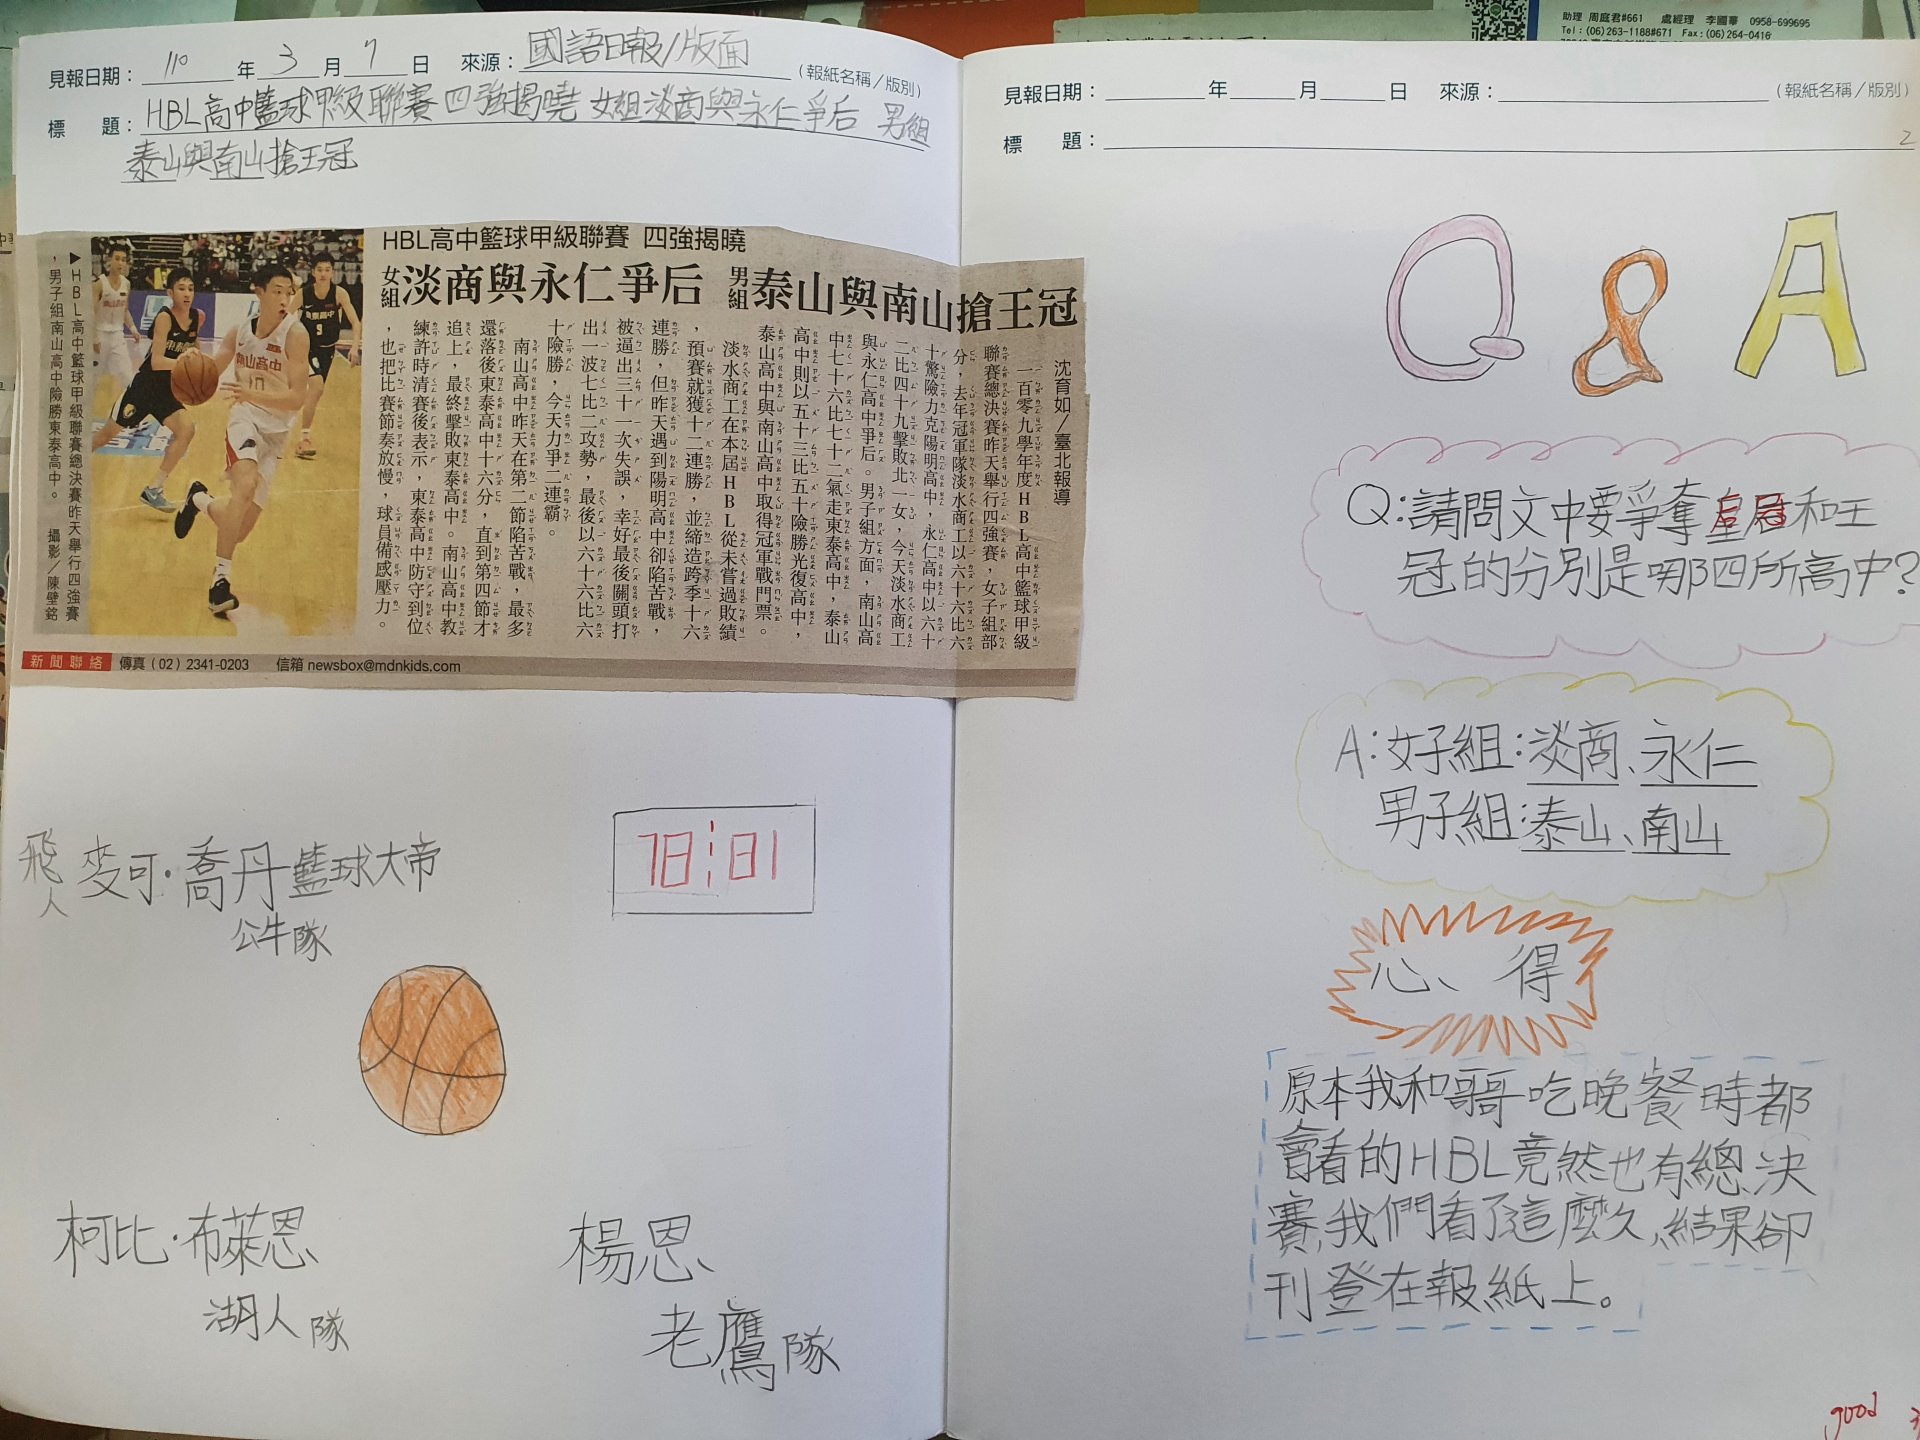 助理 周庭君#661 處經理 李國華 0958-699695
Tel：(06)263-1188#671 Fax：(06)264-0416
見報日期：110年3月7日 來源：國語日報/版面（報紙名稱／版別）
標 題：HBL高中籃球甲級聯賽四強揭曉 女組淡商與永仁爭后 男組
泰山與南山搶王冠
HBL高中籃球甲級聯賽 四強揭曉
女組 淡商與永仁爭后 男組 泰山與南山搶王冠
沈育如／臺北報導
一百零九學年度HBL高中籃球甲級
聯賽總決賽昨天舉行四強賽，女子組部
分，去年冠軍隊淡水商工以六十六比六
十驚險力克陽明高中，永仁高中以六十
二比四十九擊敗北一女，今天淡水商工
與永仁高中爭后。男子組方面，南山高
中七十六比七十二氣走東泰高中，泰山
高中則以五十三比五十險勝光復高中，
泰山高中與南山高中取得冠軍戰門票。
淡水商工在本屆HBL從未嘗過敗績
，預賽就獲十二連勝，並締造跨季十六
連勝，但昨天遇到陽明高中卻陷苦戰，
被逼出三十一次失誤，幸好最後關頭打
出一波七比二攻勢，最後以六十六比六
十險勝，今天力爭二連霸。
南山高中昨天在第二節陷苦戰，最多
還落後東泰高中十六分，直到第四節才
追上，最終擊敗東泰高中。南山高中教
練許時清賽後表示，東泰高中防守到位
，也把比賽節奏放慢，球員備感壓力。
▶HBL高中籃球甲級聯賽總決賽昨天舉行四強賽
，男子組南山高中險勝東泰高中。 攝影／陳璧銘
南山高中
10
東泰高中
9
新聞聯絡 傳真（02）2341-0203 信箱 newsbox@mdnkids.com
飛人 麥可·喬丹籃球大帝
公牛隊
78:81
柯比·布萊恩
湖人隊
楊恩
老鷹隊
見報日期：年月日 來源：（報紙名稱／版別）
標 題：
2
Q & A
Q：請問文中要爭奪皇冠和王
冠的分別是哪四所高中？
A：女子組：淡商、永仁
男子組：泰山、南山
心得
原本我和哥哥吃晚餐時都
會看的HBL竟然也有總決
賽，我們看了這麼久，結果卻
刊登在報紙上。
good